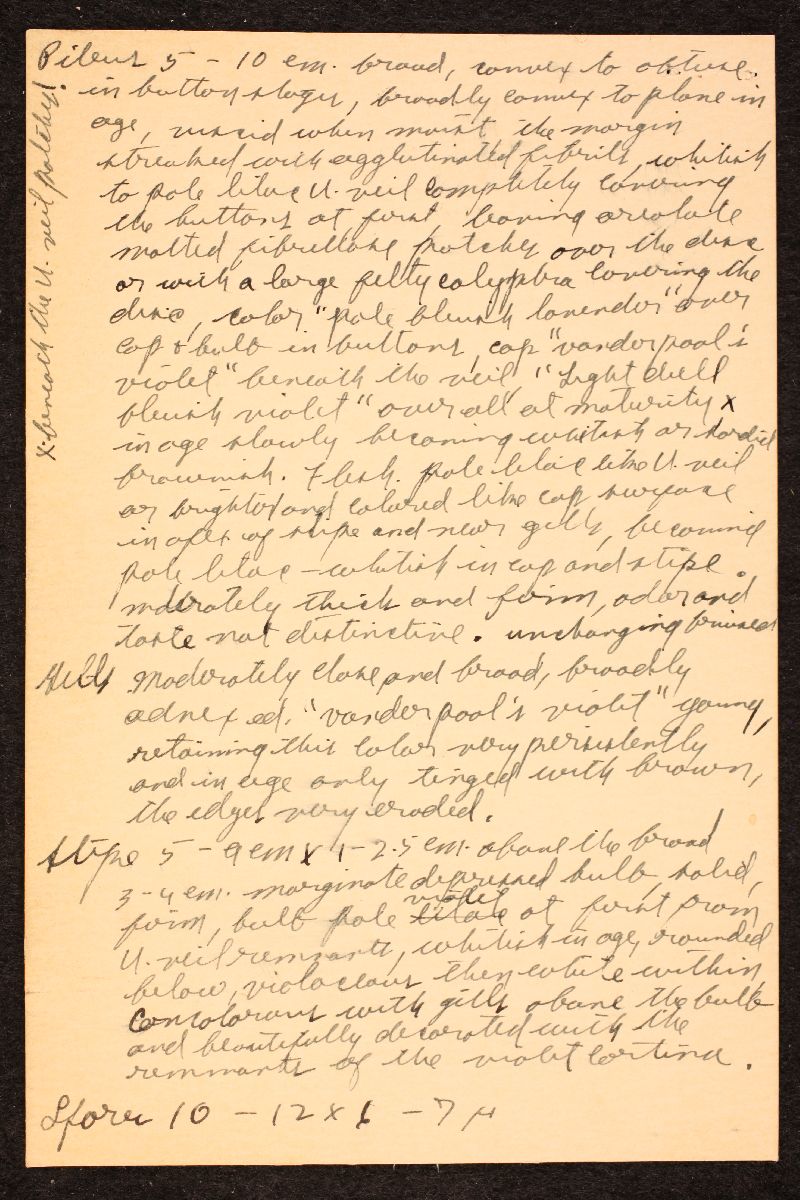 Pileus 5 - 10 cm. broad, convex to obtuse
in button stages, broadly convex to plane in
age, viscid when moist, the margin
streaked with agglutinated fibrils, whitish
to pale lilac U. veil completely covering
the buttons at first, leaving areolate
matted fibrillose patches over the disc
or with a large felty calyptra covering the
disc, color "pale bluish lavender" over
cap & bulb in buttons, cap "vanderpool's
violet" beneath the veil, "Light dull
bluish violet" overall at maturity x
in age slowly becoming whitish or sordid
brownish. Flesh pale lilac like U. veil
or brighter and colored like cap surface
in apex of stipe and near gills, becoming
pale lilac - whitish in cap and stipe.
moderately thick and firm, odor and
taste not distinctive. unchanging bruised
Gills moderately close and broad, broadly
adnexed, "vanderpool's violet" young,
retaining this color very persistently
and in age only tinged with brown,
the edges very eroded.
Stipe 5 - 9 cm x 1 - 2.5 cm. above the broad
3 - 4 cm. marginate depressed bulb, solid,
violet
firm, bulb pale lilac at first from
U. veil remnants, whitish in age, rounded
below, violaceous then white within,
Concolorous with gills above the bulb
and beautifully decorated with the
remnants of the violet cortina.
Spores 10 - 12 x 6 - 7 µ
x-beneath the U. veil patches!